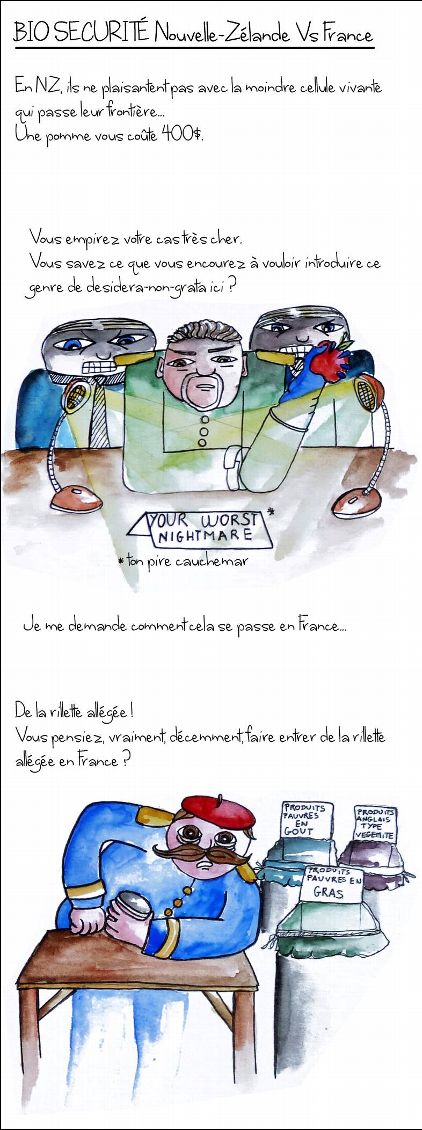 BIO SECURITÉ Nouvelle-Zélande Vs France
En NZ, ils ne plaisantent pas avec la moindre cellule vivante
qui passe leur frontière...
Une pomme vous coûte 400$.
Vous empirez votre cas très cher.
Vous savez ce que vous encourez à vouloir introduire ce
genre de desidera-non-grata ici ?
YOUR WORST *
NIGHTMARE
* ton pire cauchemar
Je me demande comment cela se passe en France...
De la rillette allégée !
Vous pensiez, vraiment, décemment, faire entrer de la rillette
allégée en France ?
PRODUITS
PAUVRES
EN
GOUT
PRODUITS
ANGLAIS
TYPE
VEGEMITE
PRODUITS
PAUVRES EN
GRAS